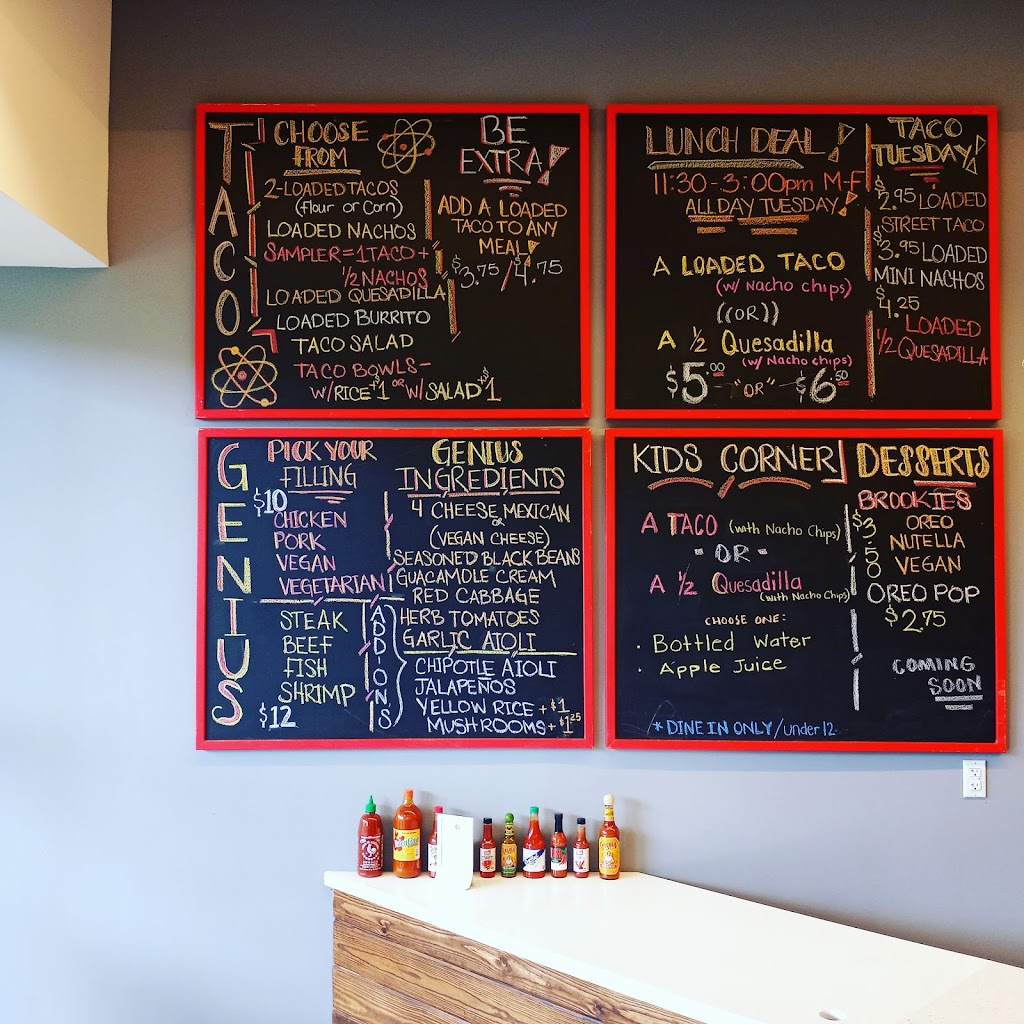 TACO
CHOOSE
FROM
2-LOADED TACOS
(flour or Corn)
LOADED NACHOS
SAMPLER = 1 TACO +
1/2 NACHOS
LOADED QUESADILLA
LOADED BURRITO
TACO SALAD
TACO BOWLS -
W/RICE +$1 OR W/ SALAD +$1
BE
EXTRA!
ADD A LOADED
TACO TO ANY
MEAL!
$3.75/$4.75
LUNCH DEAL!
11:30-3:00pm M-F
ALL DAY TUESDAY!
A LOADED TACO
(w/ Nacho chips)
((OR))
A 1/2 Quesadilla
(w/ Nacho chips)
$5.00 "OR" $6.50
TACO
TUESDAY!
$2.95 LOADED
STREET TACO
$3.95 LOADED
MINI NACHOS
$4.25
LOADED
1/2 QUESADILLA
GENIUS
PICK YOUR
FILLING
$10
CHICKEN
PORK
VEGAN
VEGETARIAN
STEAK
BEEF
FISH
SHRIMP
$12
ADDIONS
GENIUS
INGREDIENTS
4 CHEESE MEXICAN
or
(VEGAN CHEESE)
SEASONED BLACK BEANS
GUACAMOLE CREAM
RED CABBAGE
HERB TOMATOES
GARLIC AIOLI
CHIPOTLE AIOLI
JALAPEÑOS
YELLOW RICE +$1
MUSHROOMS +$1.25
KIDS CORNER
A TACO (with Nacho Chips)
- OR -
A 1/2 Quesadilla
(with Nacho Chips)
CHOOSE ONE:
· Bottled Water
· Apple Juice
* DINE IN ONLY/under 12
DESSERTS
BROOKIES
$3.50
OREO
NUTELLA
VEGAN
OREO POP
$2.75
COMING
SOON